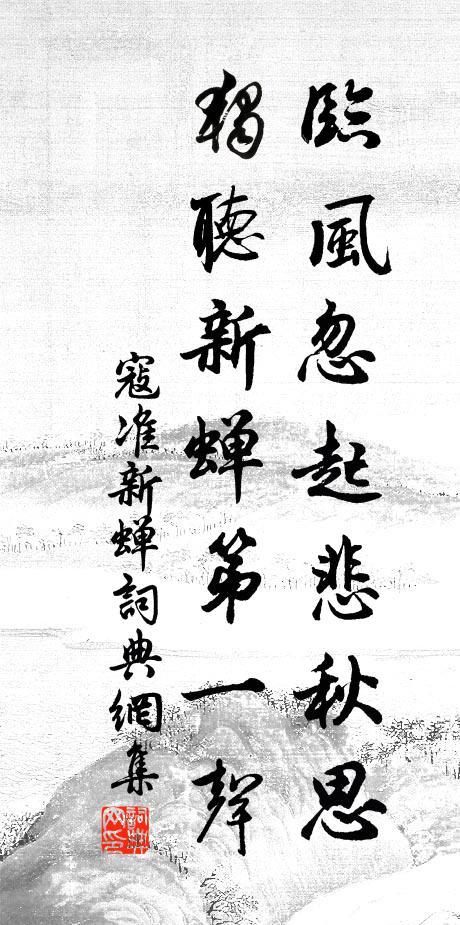 臨風忽起悲秋思
獨聽新蝉第一聲
寇准新蝉詞典網集